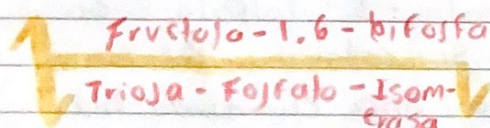 Fructosa-1,6-bifosfa
Triosa-Fosfato-Isom-
erasa